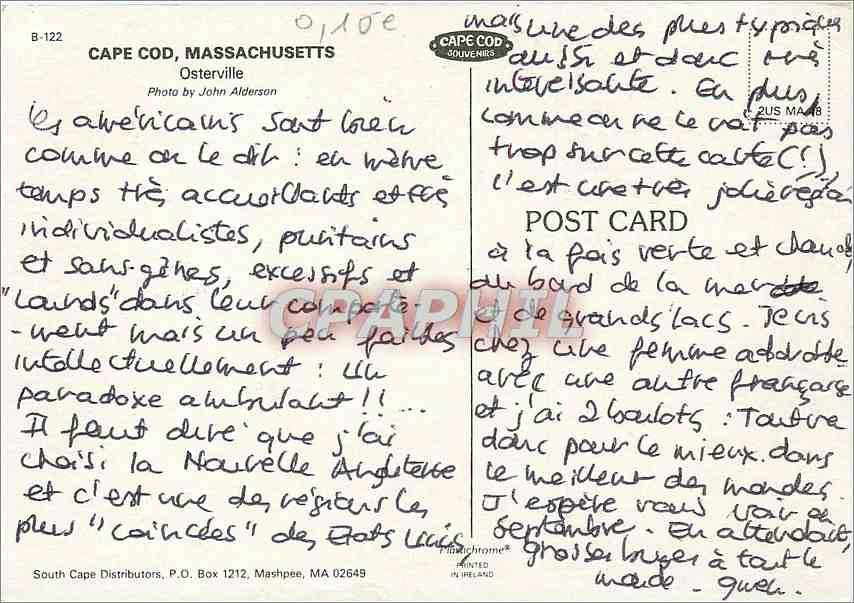 0,10e
B-122
CAPE COD, MASSACHUSETTS
Osterville
Photo by John Alderson
les américains sont bien
comme on le dit : en même
temps très accueillants et très
individualistes, puritains
et sans-gênes, excessifs et
"lourds" dans leur comporte-
-ment mais un peu faibles
intellectuellement : un
paradoxe ambulant !! ...
Il faut dire que j'ai
choisi la Nouvelle Angleterre
et c'est une des régions les
plus "coincées" des Etats Unis,
South Cape Distributors, P.O. Box 1212, Mashpee, MA 02649
CAPE COD
SOUVENIRS
mais une des plus typiques
aussi et donc très
intéressante. En plus,
comme on ne le voit pas
2US MA 18
trop sur cette carte (!),
c'est une très jolie région
POST CARD
à la fois verte et chaude,
au bord de la mer
et de grands lacs. Je vis
chez une femme adorable
avec une autre française
et j'ai 2 boulots : Tout va
donc pour le mieux dans
le meilleur des mondes.
J'espère vous voir en
septembre. En attendant,
grosses bises à tout le
monde - Gwen.
Plastichrome®
PRINTED
IN IRELAND
CPAPHIL